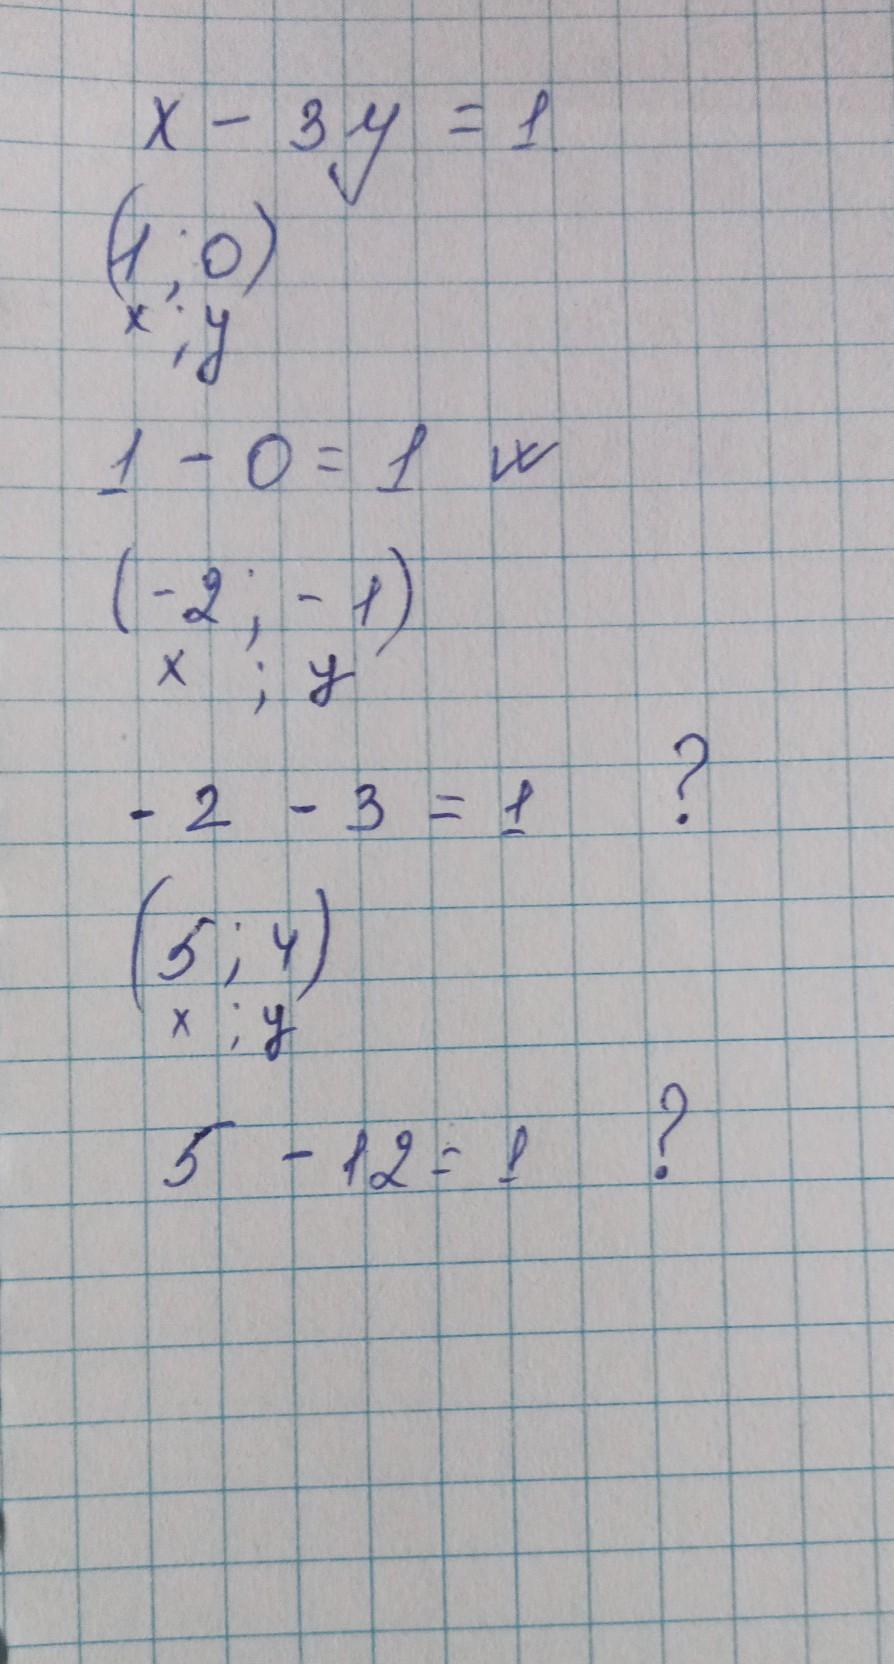 x - 3y = 1
(1; 0)
x ; y
1 - 0 = 1
(-2; -1)
x ; y
- 2 - 3 = 1 ?
(5; 4)
x ; y
5 - 12 = 1 ?